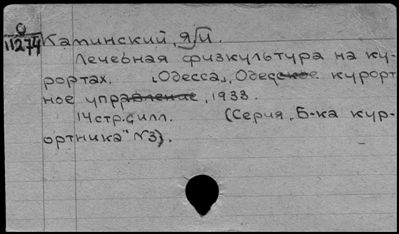 О
11274
Каминский, Я/И.
Лечебная физкультура на ку-
рортах. „Одесса", Одесское курорт
ное управление, 1933.
14 стр. с илл. (Серия „Б-ка кур-
ортника" №3).